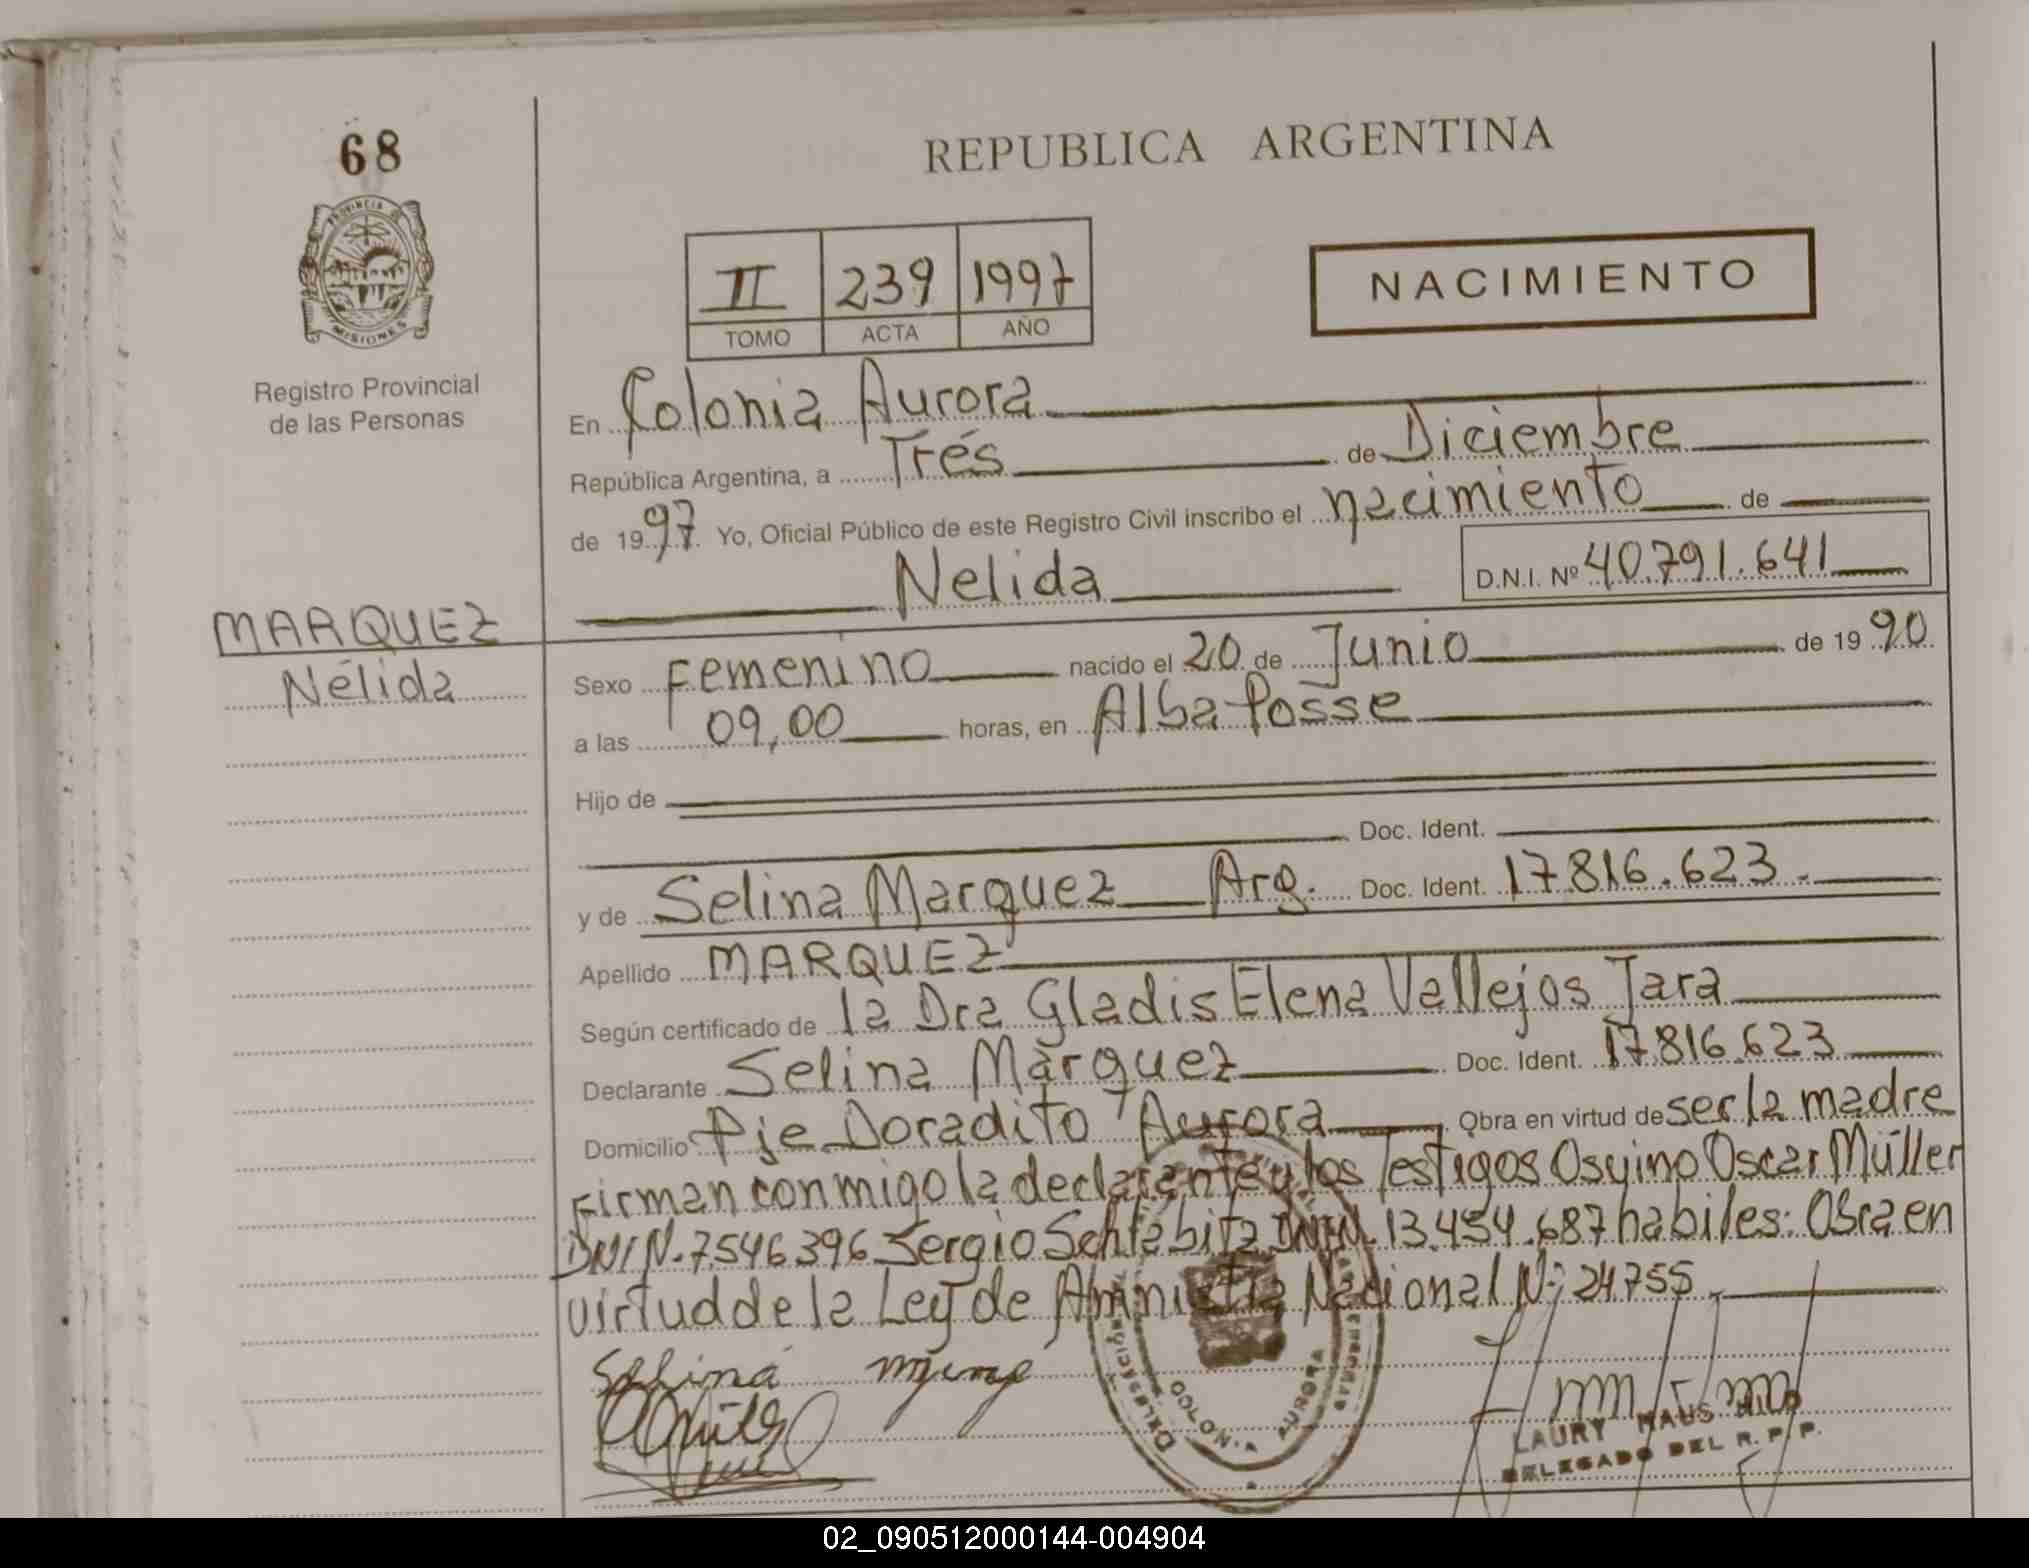 68
PROVINCIA DE
MISIONES
Registro Provincial
de las Personas
MARQUEZ
Nélida
REPUBLICA ARGENTINA
II 239 1997
TOMO ACTA AÑO
NACIMIENTO
En Colonia Aurora
República Argentina, a Trés de Diciembre
de 1997 Yo, Oficial Público de este Registro Civil inscribo el nacimiento de
Nelida D.N.I. Nº 40.791.641
Sexo Femenino nacido el 20 de Junio de 1990
a las 09,00 horas, en Alba Posse
Hijo de
Doc. Ident.
y de Selina Marquez Arg. Doc. Ident. 17816.623.
Apellido MARQUEZ
Según certificado de la Dra Gladis Elena Vallejos Jara
Declarante Selina Màrquez Doc. Ident. 17.816.623
Domicilio Pje Doradito Aurora Obra en virtud de ser la madre
Firman conmigo la declarante y los Testigos Osvino Oscar Müller
DNI N. 7.546.396 Sergio Schlabitz DNI N. 13.454.687 habiles: Obra en
virtud de la Ley de Amnistia Nacional Nº 24755
Selina
COLONIA AURORA
LAURY HAUS
DELEGADO DEL R.P.P.
02_090512000144-004904